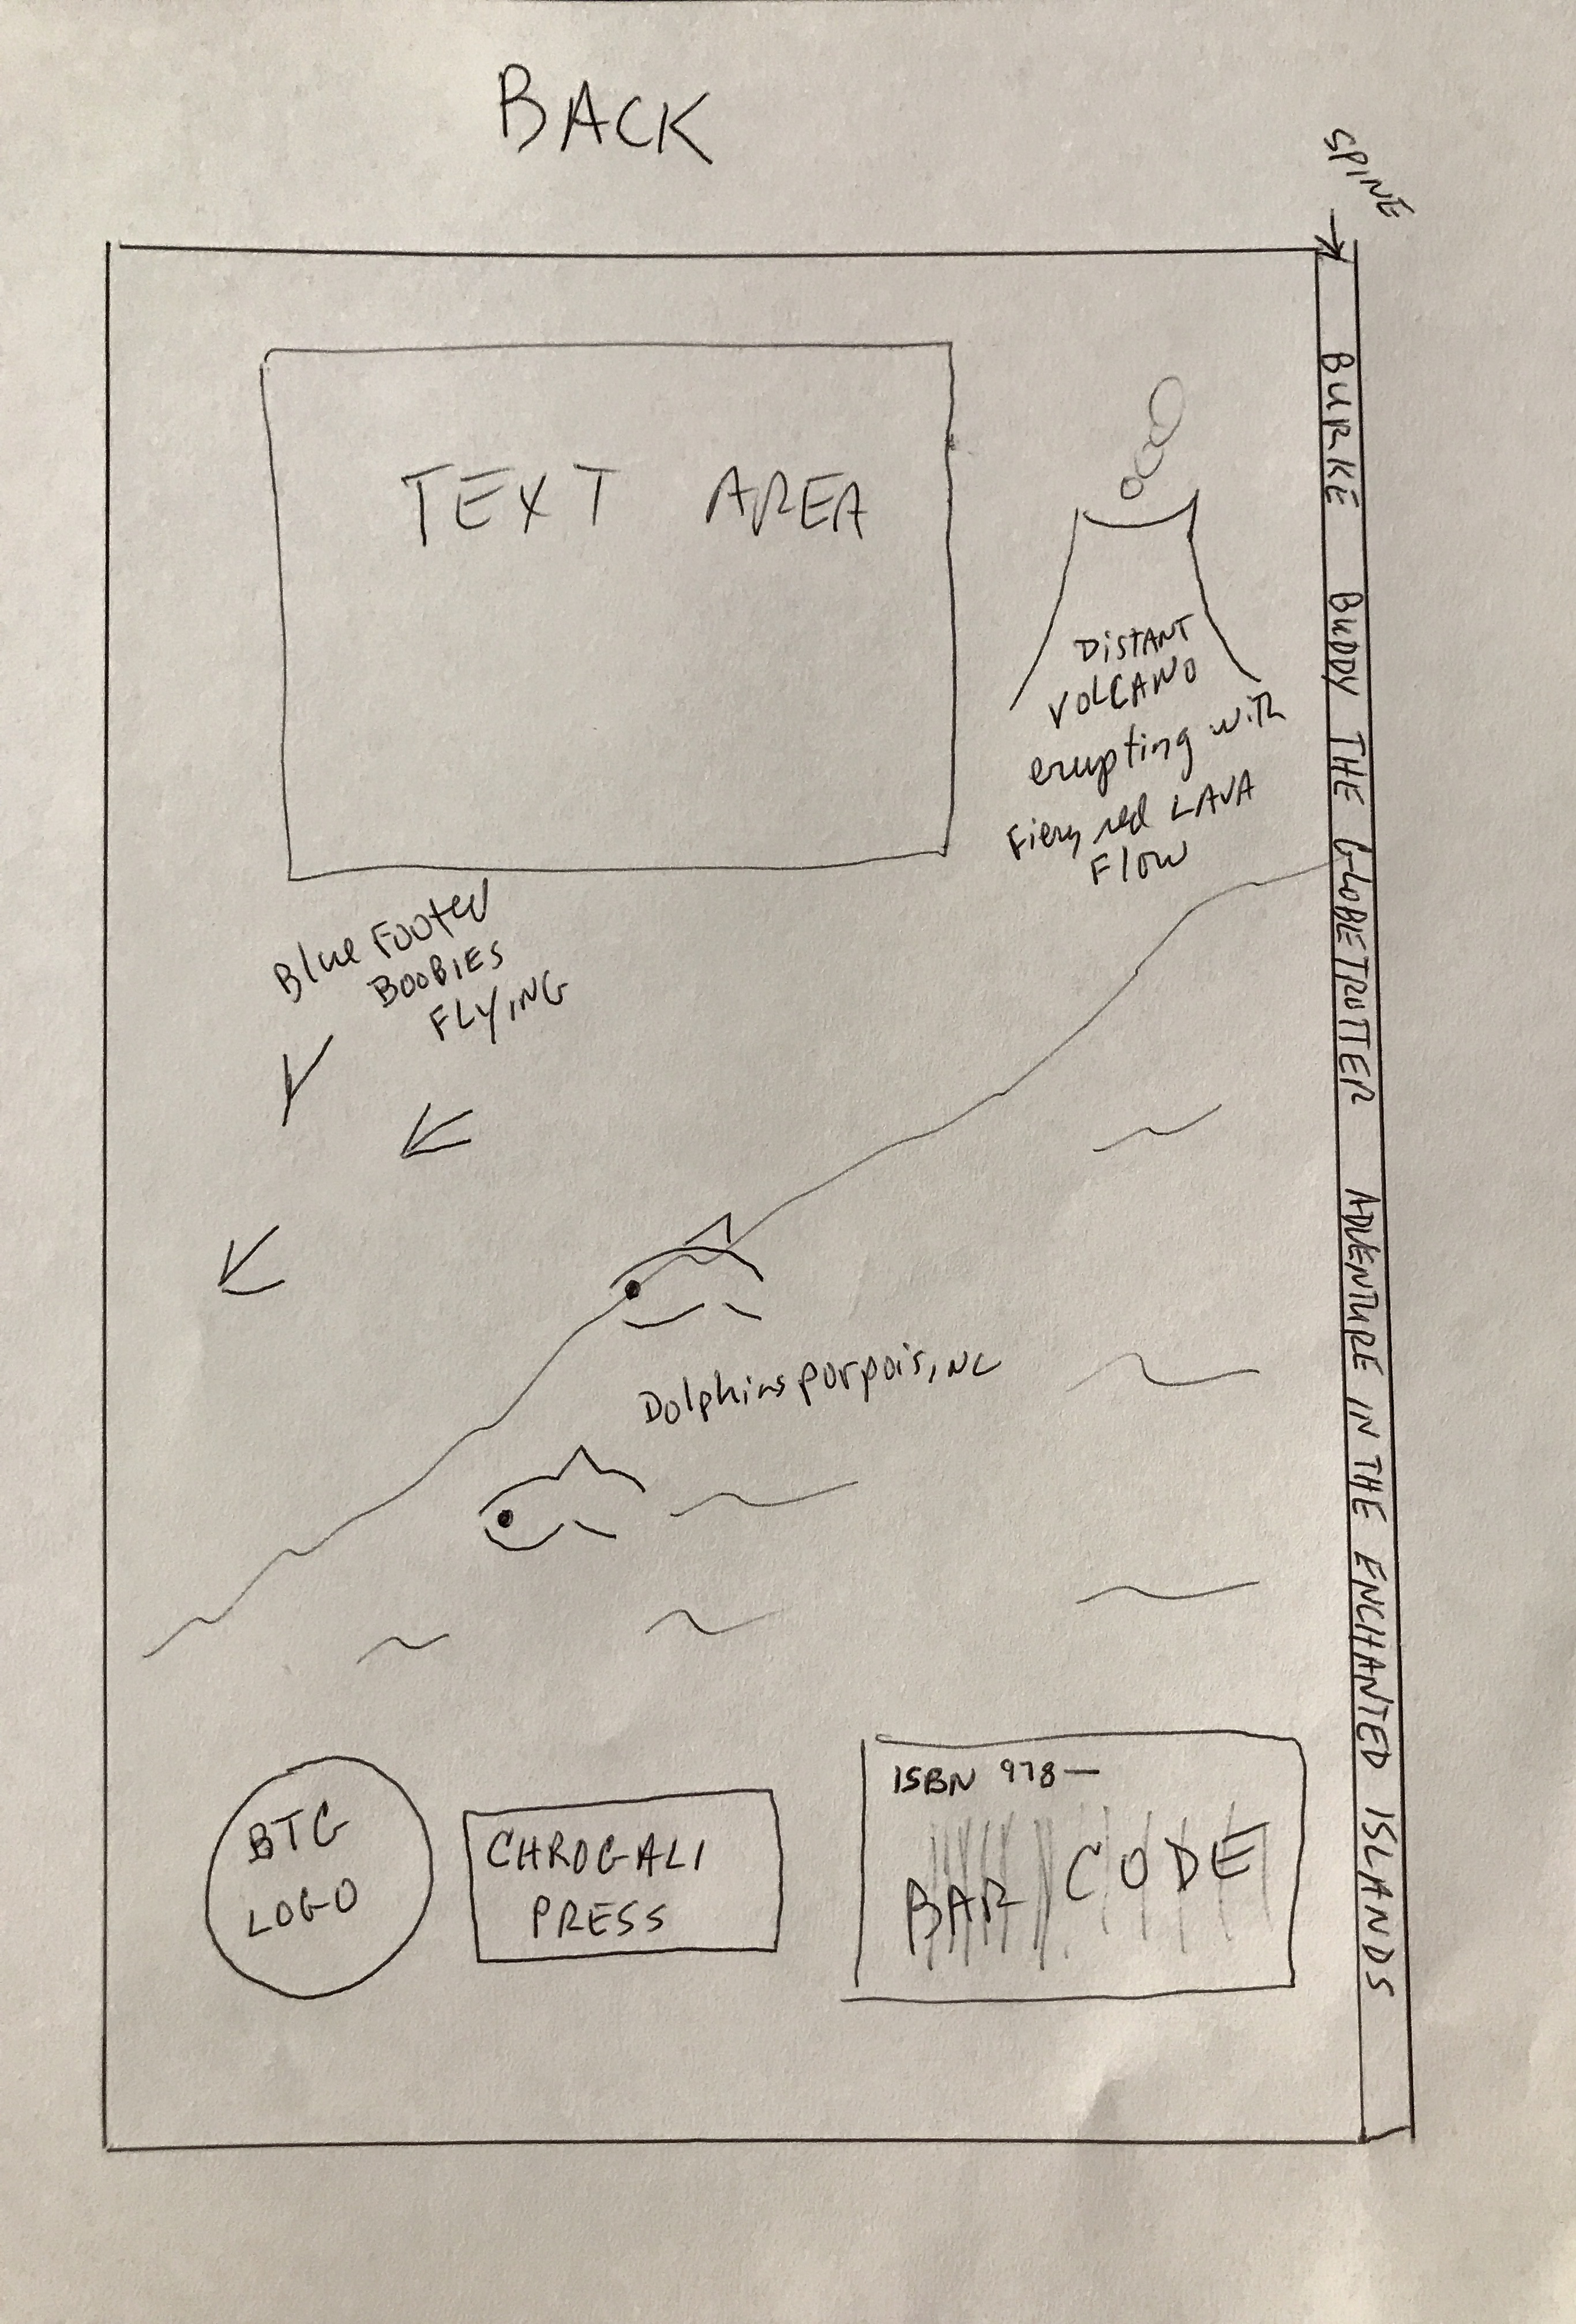 BACK
SPINE
TEXT AREA
DISTANT
VOLCANO
erupting with
Fiery red LAVA
FLOW
Blue Footed
BOOBIES
FLYING
Dolphins porpoising
BTG
LOGO
CHROGALI
PRESS
ISBN 978—
BAR CODE
BURKE BUDDY THE GLOBETROTTER ADVENTURE IN THE ENCHANTED ISLANDS